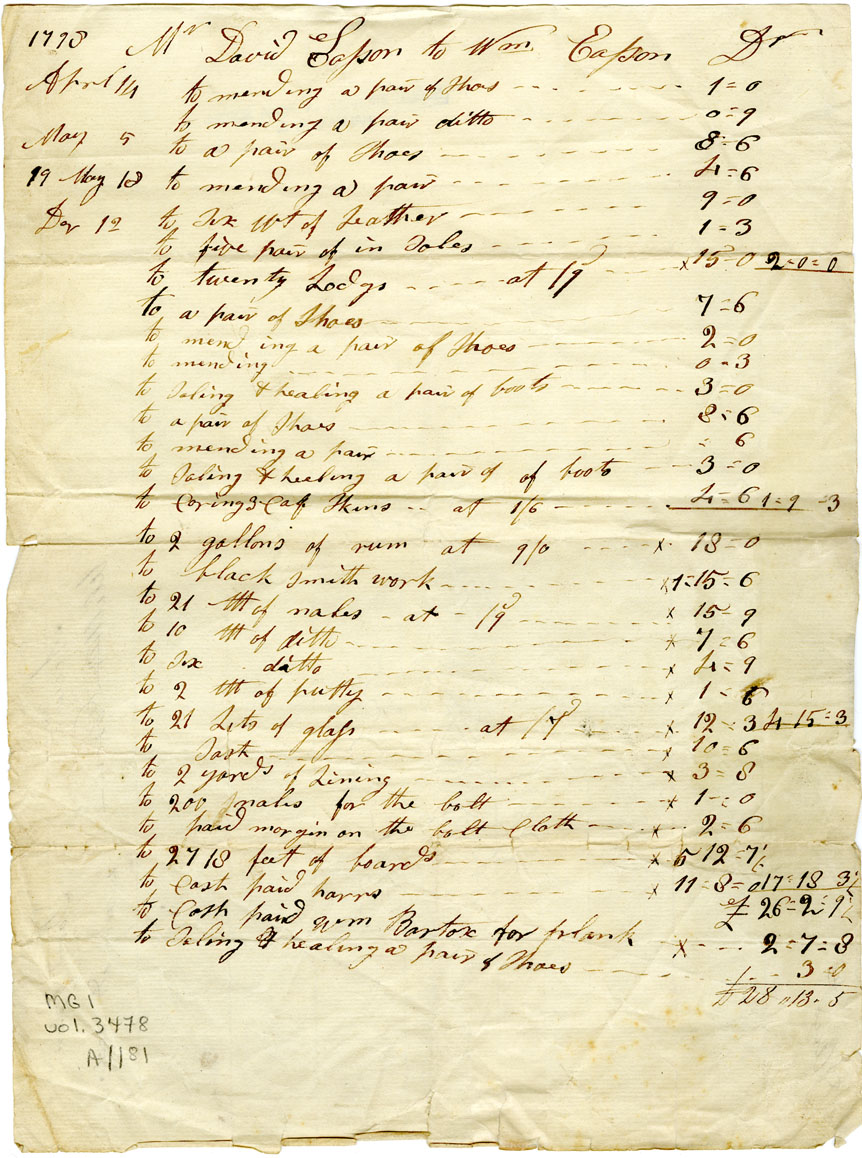 1798 Mr David Easson to Wm Easson Dr
April 14 to mending a pair of Shoes 1=0
to mending a pair ditto 0=9
May 5 to a pair of Shoes 8=6
19 May 18 to mending a pair 4=6
Der 12 to Six wt of Leather 9=0
to five pair of in Soles 1=3
to twenty Lodgs at /9d x 15=0 2=0=0
to a pair of Shoes 7=6
to mending a pair of Shoes 2=0
to mending 0=3
to Soling & healing a pair of boots 3=0
to a pair of Shoes 8=6
to mending a pair = 6
to Soling & healing a pair of of boots 3=0
to Coring 3 Caf Skins at 1/6 4=6 1=9=3
to 2 gallons of rum at 9/0 x 18=0
to black Smith work x 1=15=6
to 21 lb of nales at /9d x 15=9
to 10 lb of ditto x 7=6
to Six ditto x 4=9
to 2 lb of putty x 1=6
to 21 Lits of glass at /7d x 12=3 4=15=3
to Sash x 10=6
to 2 yards of Lining x 3=8
to 200 nales for the bolt x 1=0
to paid morgin on the bolt Cloth x 2=6
to 2718 feet of boards x 5 12=7½
to Cash paid harrs x 11=8=0 17=18 3½
£ 26=2=9½
to Cash paid Wm Bartox for plank x 2=7=8
to Soling & healing a pair of Shoes 3=0
£ 28=13=5
MG 1
vol. 3478
A/181